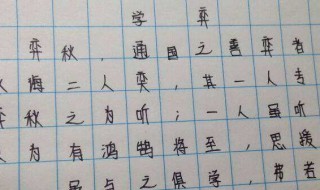 学弈
弈秋，通国之善弈者
诲二人奕，其一人专
弈秋之为听；一人虽听
为有鸿鹄将至，思援
虽与之俱学，弗若